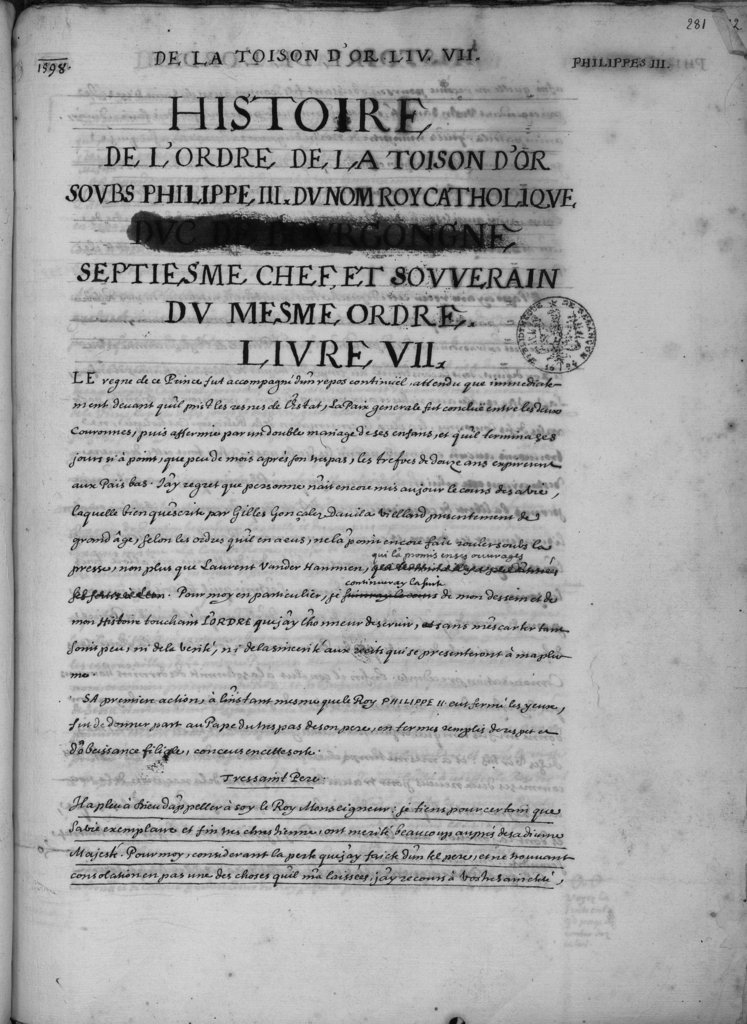 281
1598.
DE LA TOISON D'OR. LIV. VII.
PHILIPPES III.
HISTOIRE
DE L'ORDRE DE LA TOISON D'OR
SOVBS PHILIPPE III. DV NOM ROY CATHOLIQVE,
DVC DE BOVRGONGNE,
SEPTIESME CHEF, ET SOVVERAIN
DV MESME ORDRE.
LIVRE VII.
LE regne de ce Prince fut accompagné d'un repos continuël, attendu que immediate-
ment devant qu'il prist les resnes de l'Estat, La Paix generale fut concluë entre les deux
Couronnes, puis affermie par un double mariage de ses enfans, et qu'il termina ses
jours si à point, que peu de mois apres son trespas, les trefves de douze ans expirerent
aux Païs bas. J'ay regret que personne n'ait encore mis au jour le cours de sa vie,
laquelle bien qu'escrite par Gilles Gonçalez Davila viellard presentement de
grand âge, selon les ordres qu'il en a eus, ne l'a point encore fait rouler soubs la
qui l'a promis en ses ouvrages
presse, non plus que Laurent Vander Hammen,
continueray la suit
Pour moy en particulier, je de mon dessein et de
mon Histoire touchant L'ORDRE que j'ay l'honneur de servir, sans m'escarter tant
soit peu, ni de la verité, ni de la sincerité aux recits qui se presenteront à ma plu-
me.
SA premiere action, à l'instant mesme que le Roy PHILIPPE II. eut fermé les yeux,
fut de donner part au Pape du trespas de son pere, en termes remplis de respect et
d'obeïssance filiale, conceus en cette sorte.
Tressaint Pere.
Il a pleu à Dieu d'appeller à soy le Roy Monseigneur: je tiens pour certain que
sa vie exemplaire et fin tres chrestienne, ont merité beaucoup aupres de sa divine
Majesté. Pour moy, considerant la perte que j'ay faicte d'un tel pere, et ne trouvant
consolation en pas une des choses qu'il m'a laissées, j'ay recours à Vostre Sainteté,